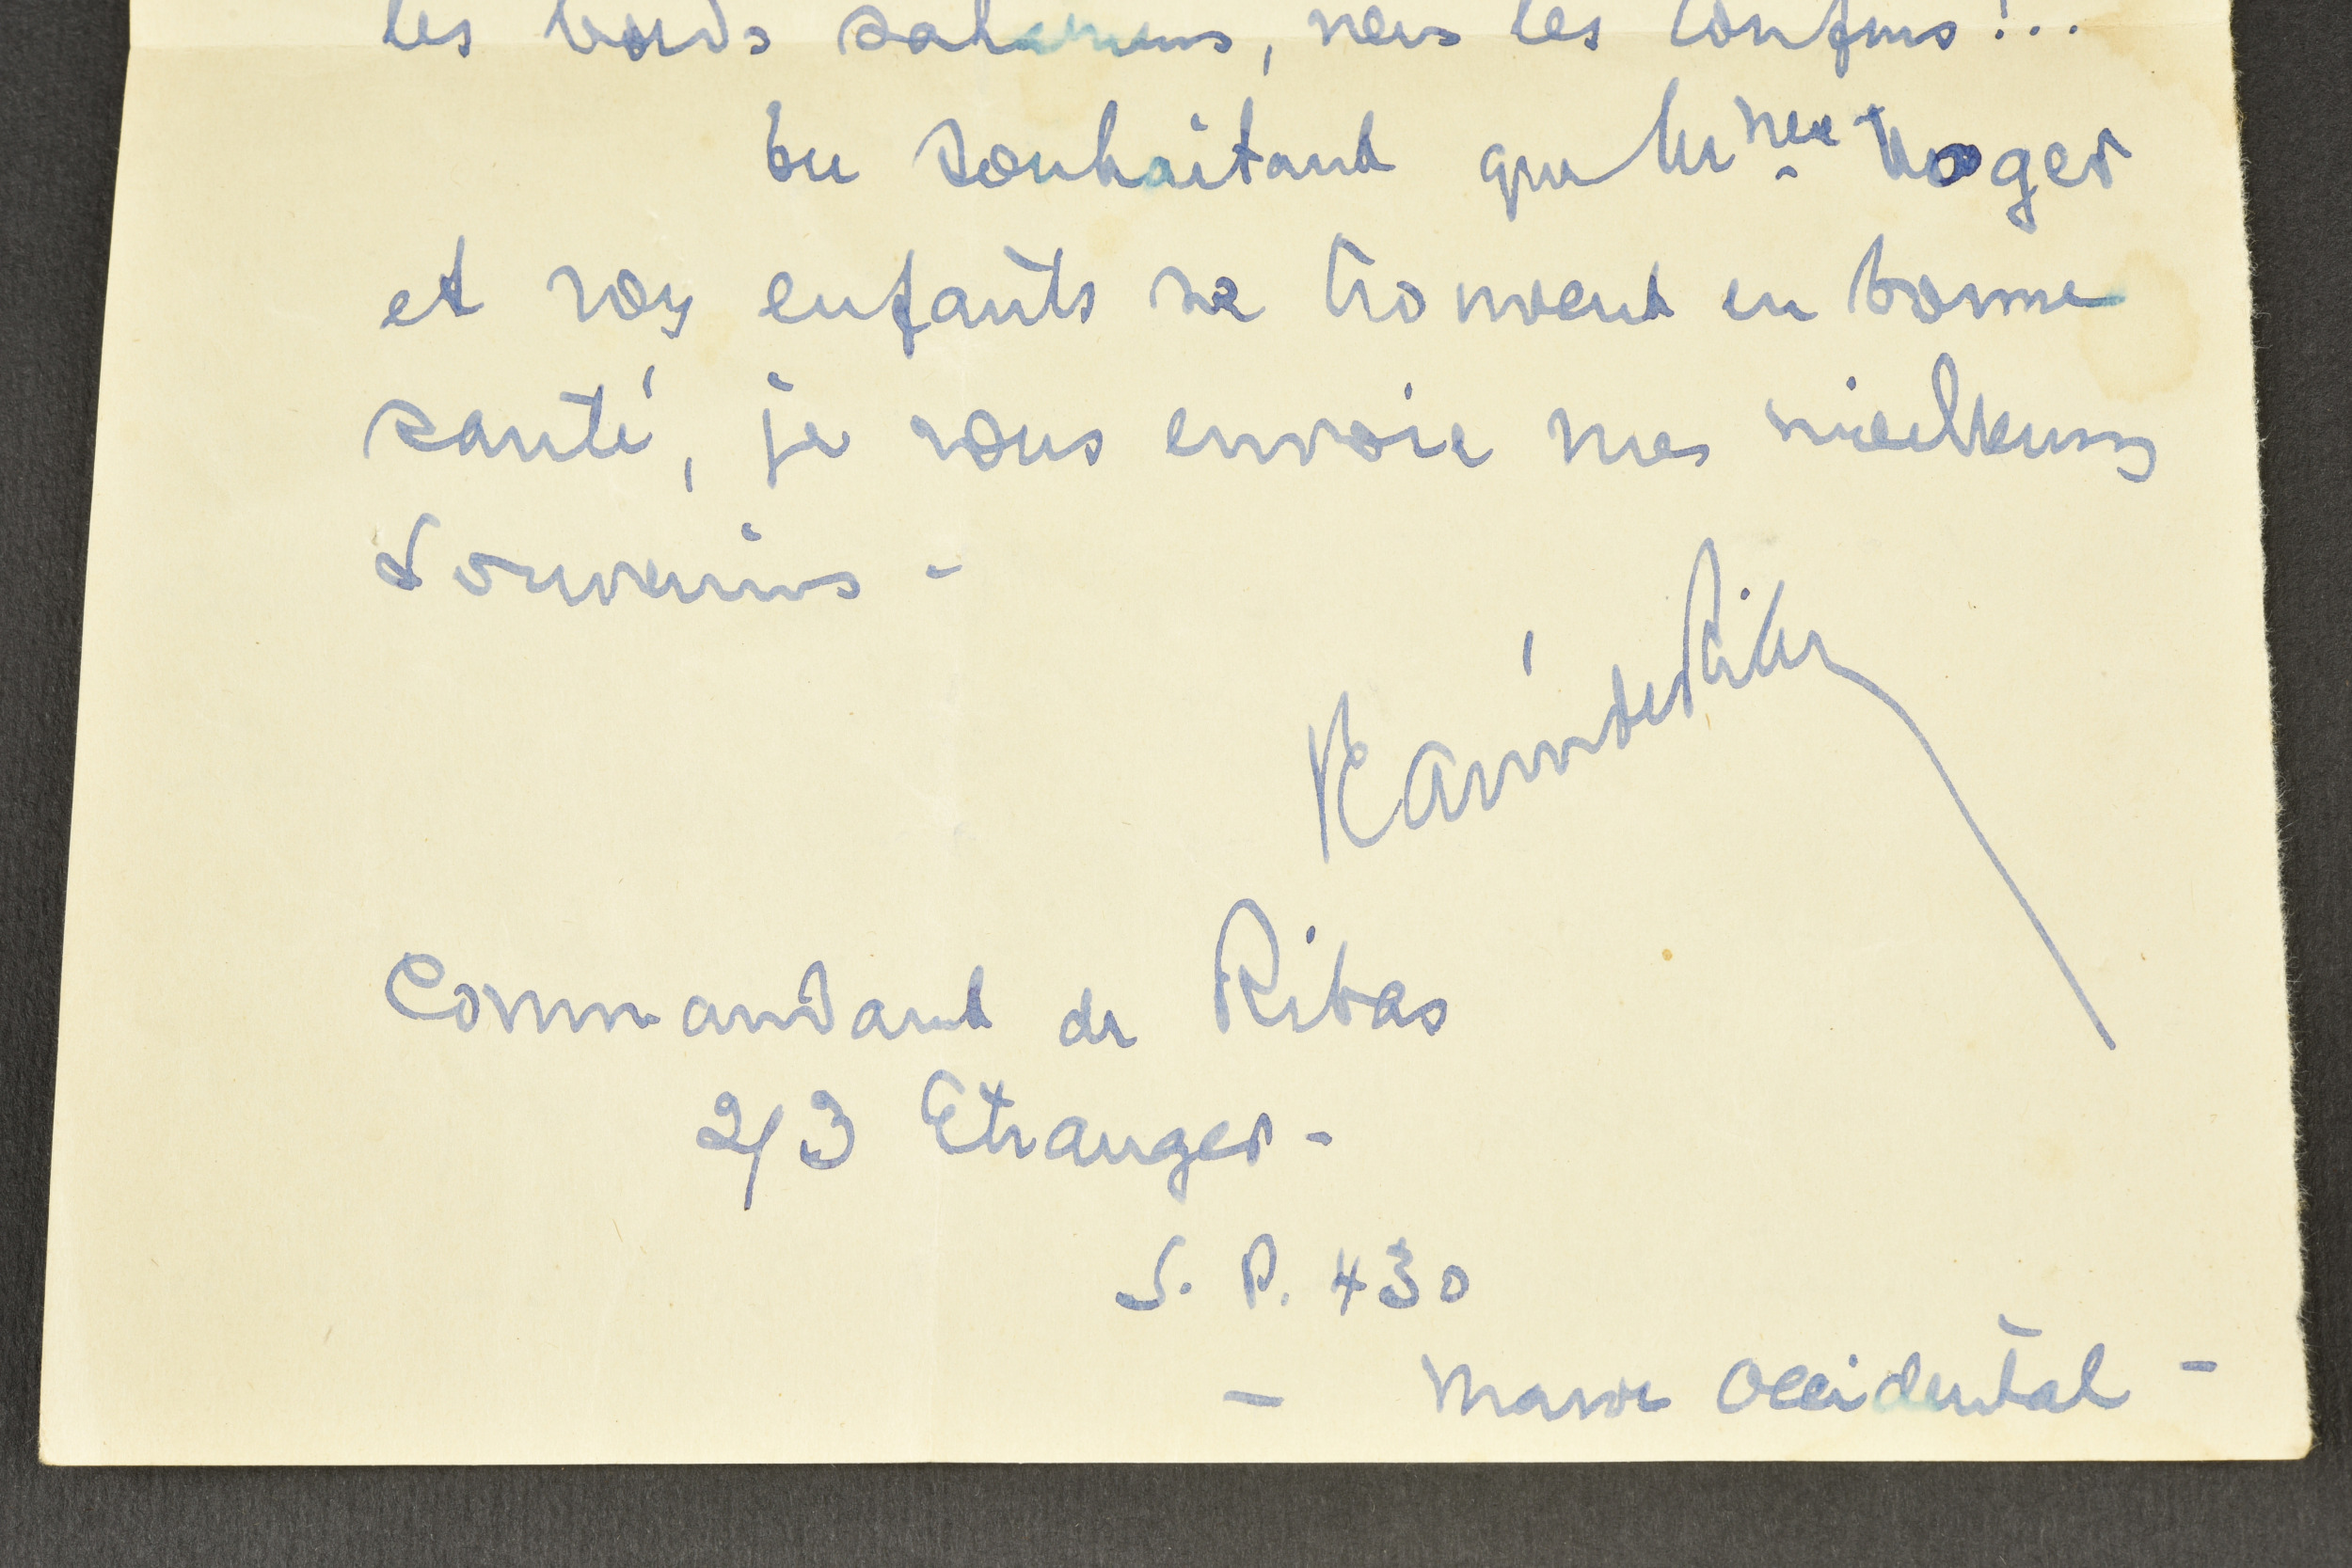 les bords sahariens, vers les confins!..
En souhaitant que Mme. Noger
et vos enfants se trouvent en bonne
santé, je vous envoie mes meilleurs
Souvenirs -
Commandant de Ribas
2/3 Etranger -
S. P. 430
- Maroc Occidental -